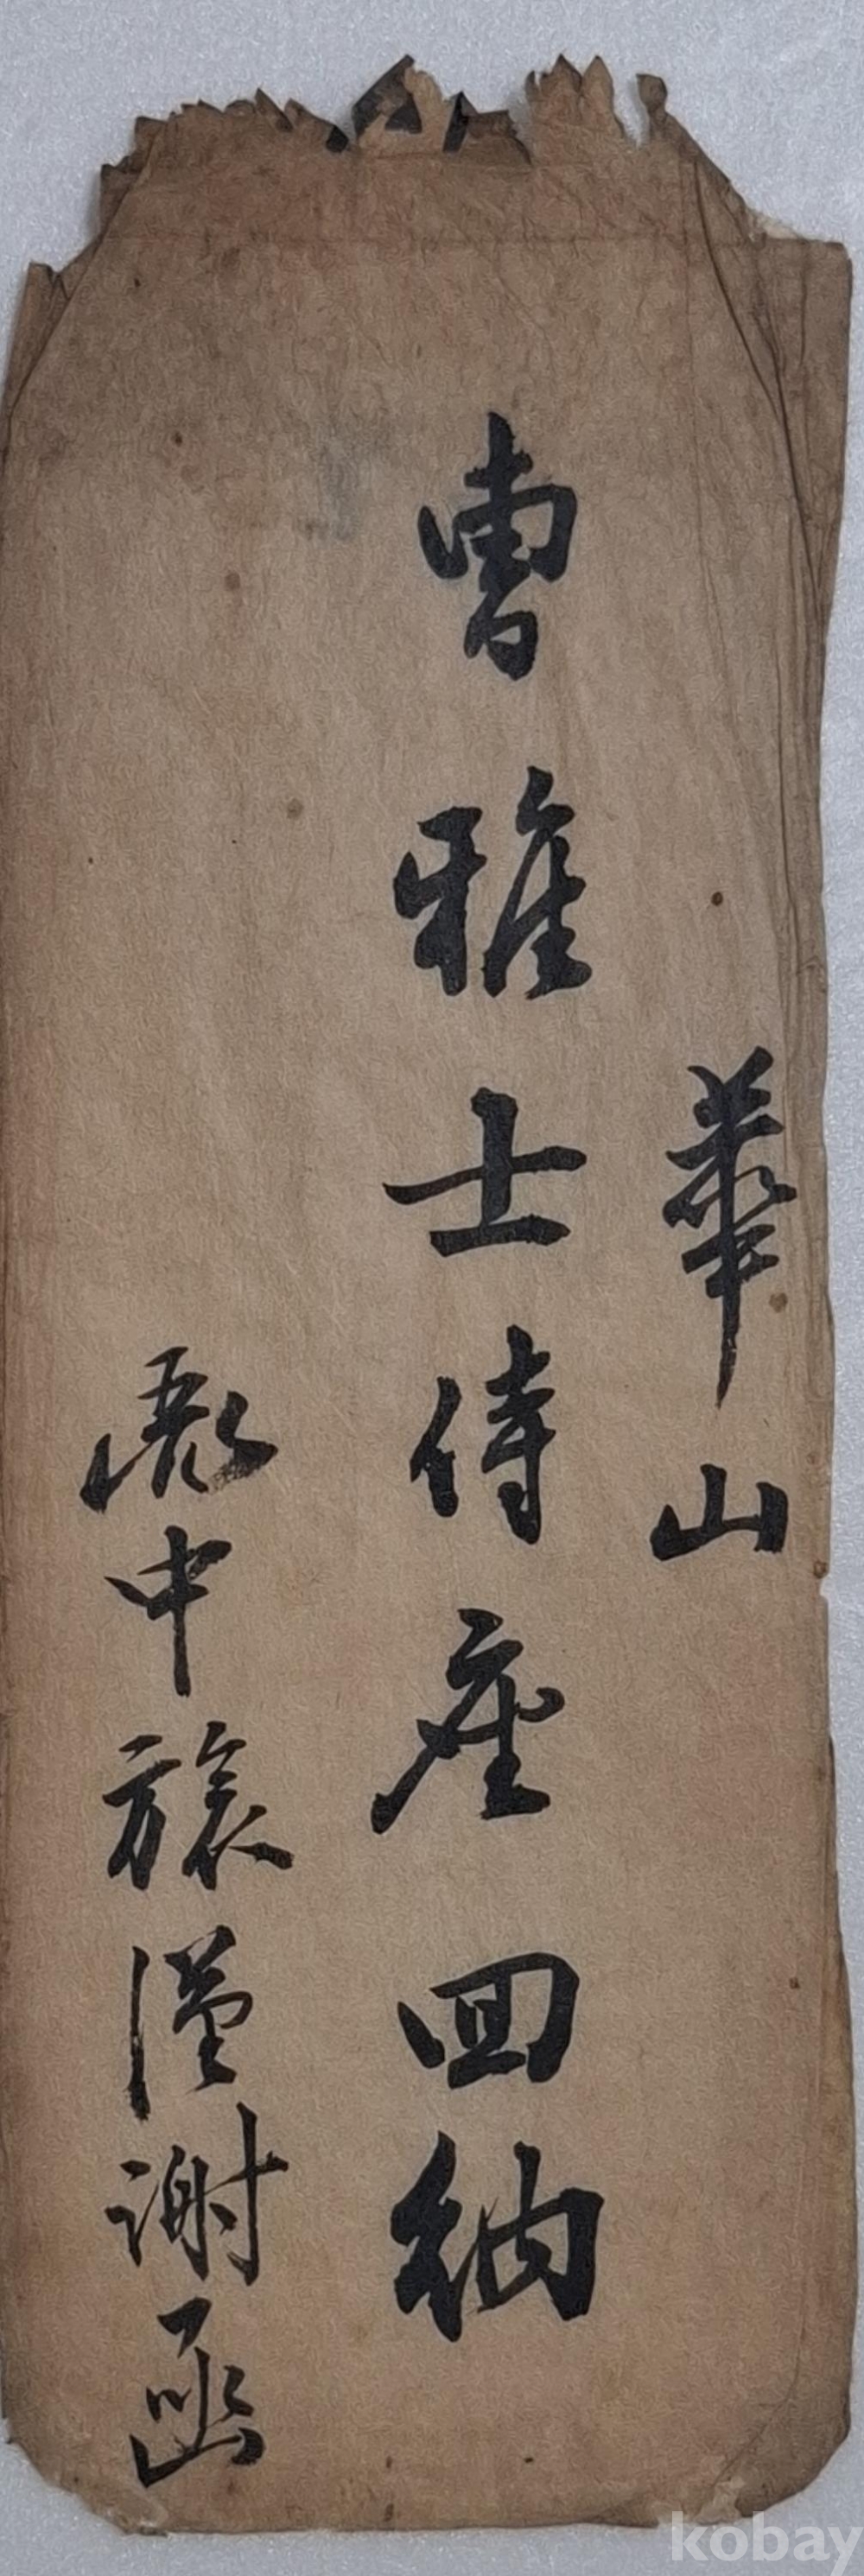 華山
曺雅士侍座回納
中旅謝函
kobay